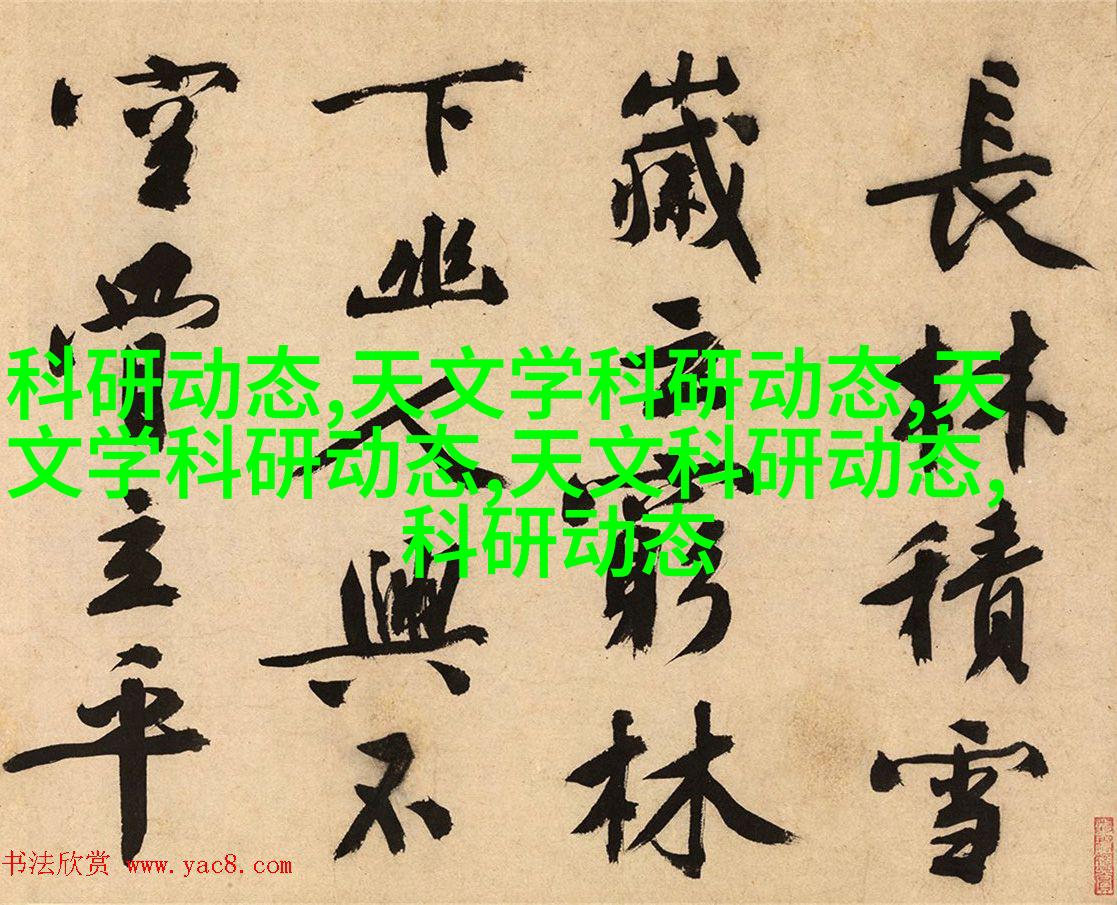 長林積雪
嵗云窮林
下幽人興不
空立平
科研动态,天文学科研动态,天
文学科研动态,天文科研动态,
科研动态
书法欣赏 www.yac8.com